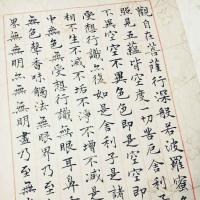 觀自在菩薩行深般若波羅蜜多
照見五蘊皆空度一切苦厄舍利子
不異空空不異色色即是空空即
受想行識亦復如是舍利子是諸
相不生不滅不垢不淨不增不減是
中無色無受想行識無眼耳鼻
無色聲香味觸法無眼界乃至無
界無無明亦無無明盡乃至無